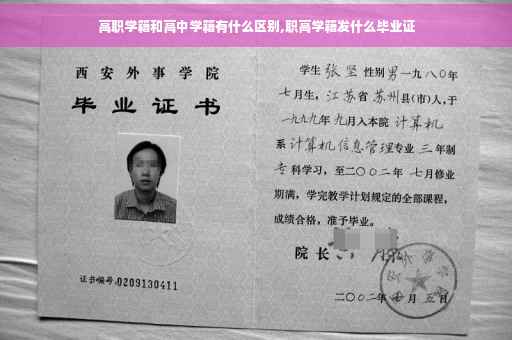 高职学籍和高中学籍有什么区别,职高学籍发什么毕业证
西安外事学院
毕业证书
证书编号:0209130411
学生 张坚 性别 男 一九八〇年
七月生，江苏省 苏州县(市)人，于
一九九九年 九月入本院 计算机
系 计算机信息管理专业 三 年制
专 科学习，至二〇〇二年 七月修业
期满，学完教学计划规定的全部课程，
成绩合格，准予毕业。
院长
二〇〇二年 七 月 五 日